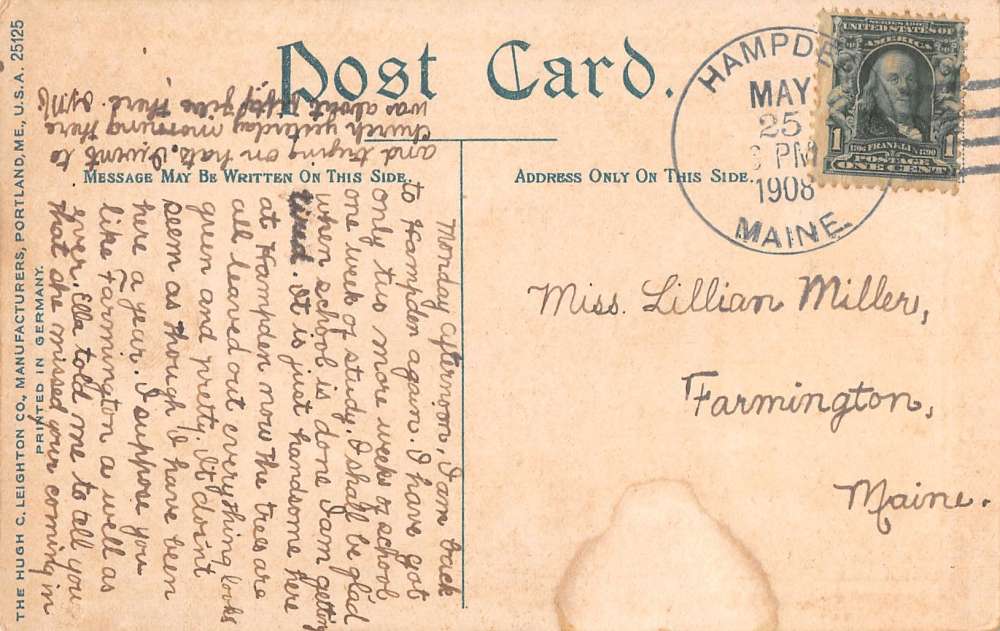 Post Card.
MESSAGE MAY BE WRITTEN ON THIS SIDE.
ADDRESS ONLY ON THIS SIDE.
THE HUGH C. LEIGHTON CO., MANUFACTURERS, PORTLAND, ME., U.S.A. 25125
PRINTED IN GERMANY.
HAMPDE
MAY
25
PM
1908
MAINE.
SERIES 1902
UNITED STATES OF
AMERICA
1706 FRANKLIN 1790
1 POSTAGE 1
ONE CENT
Miss. Lillian Miller,
Farmington,
Maine.
Monday afternoon, I am back
to Hampden again. I have got
only two more weeks of school
one week of study. I shall be glad
when school is done I am getting
tired. It is just handsome here
at Hampden now the trees are
all leaved out everything looks
green and pretty. It don't
seem as though I have been
here a year. I suppose you
like Farmington as well as
Ever. Ella told me to tell you
that she missed your coming in
and trying on hats. I went to
church yesterday morning there
was about fifty five there.